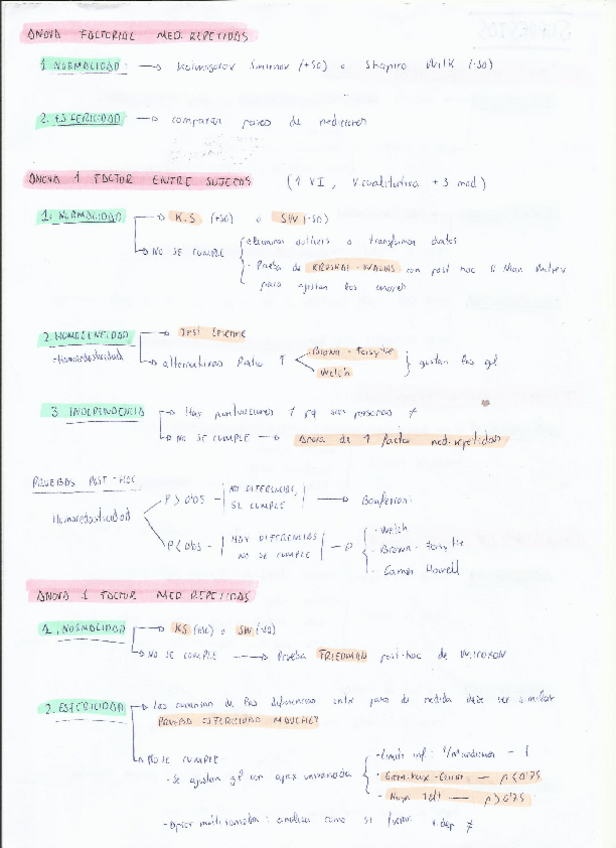 ANOVA FACTORIAL MED. REPETIDAS
1. NORMALIDAD: → Kolmogorov Smirnov (+50) o Shapiro Wilk (-50)
2. ESFERICIDAD → comparar pares de mediciones
ANOVA 1 FACTOR ENTRE SUJETOS (1 VI, V. cualitativa + 3 med)
1. NORMALIDAD → K.S (+50) o SW (-50)
→ NO SE CUMPLE eliminar outliers o transformar datos
- Prueba de KRUSKAL-WALLIS con post hoc U Man Whitney
para ajustar los errores
2. HOMOGENEIDAD → Test Levene
Homocedasticidad → alternativas Ratio ↑ Brown-Forsythe
Welch
ajustan los gl
3. INDEPENDENCIA → Hay puntuaciones 1 pq son personas ≠
→ NO SE CUMPLE → Anova de 1 factor med. repetidas
PRUEBAS POST-HOC
Homocedasticidad
P > 0'05 - NO DIFERENCIAS, SE CUMPLE → Bonferroni
P < 0'05 - HAY DIFERENCIAS NO SE CUMPLE →
- Welch
- Brown-Forsythe
- Games Howell
ANOVA 1 FACTOR MED. REPETIDAS
1. NORMALIDAD → KS (+50) o SW (-50)
→ NO SE CUMPLE → Prueba FRIEDMAN post-hoc de WILCOXON
2. ESFERICIDAD → Las varianzas de las diferencias entre pares de medida debe ser similar
PRUEBA ESFERICIDAD MAUCHLY
→ NO SE CUMPLE
- Se ajustan gl con aprox univariada
- Límite inf: 1/Mediciones - 1
- Greenhouse-Geisser — p<0'75
- Huyn Felt — p>0'75
- Aprox multivariada: analiza como si fueran v.dep ≠